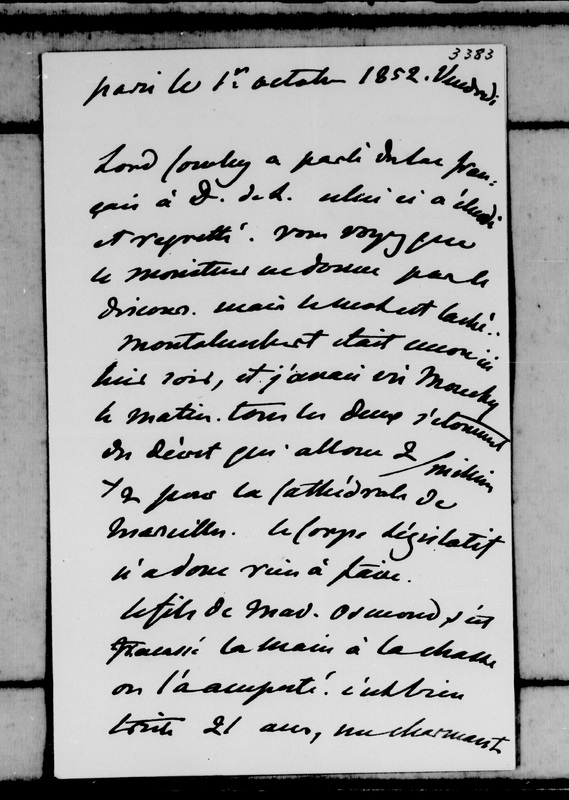 3383
paris le 1er octobre 1852. Vendredi
Lord Cowley a parlé du lac fran-
çais à D. de L. celui ci a éludé
et regretté. vous voyez que
le moniteur ne donne pas le
discours. mais le mot est laché.
Montalembert était encore ici
hier soir, et j'avais vu Mouchy
le matin. tous les deux s'étonnent
du décret qui alloue 2 millions
1/2 pour la Cathédrale de
Marseilles. le Corps législatif
n'a donc rien à faire.
le fils de Mad. Osmond s'est
fracassé la main à la chasse
on l'a amputé. c'est bien
triste 21 ans, un charmant